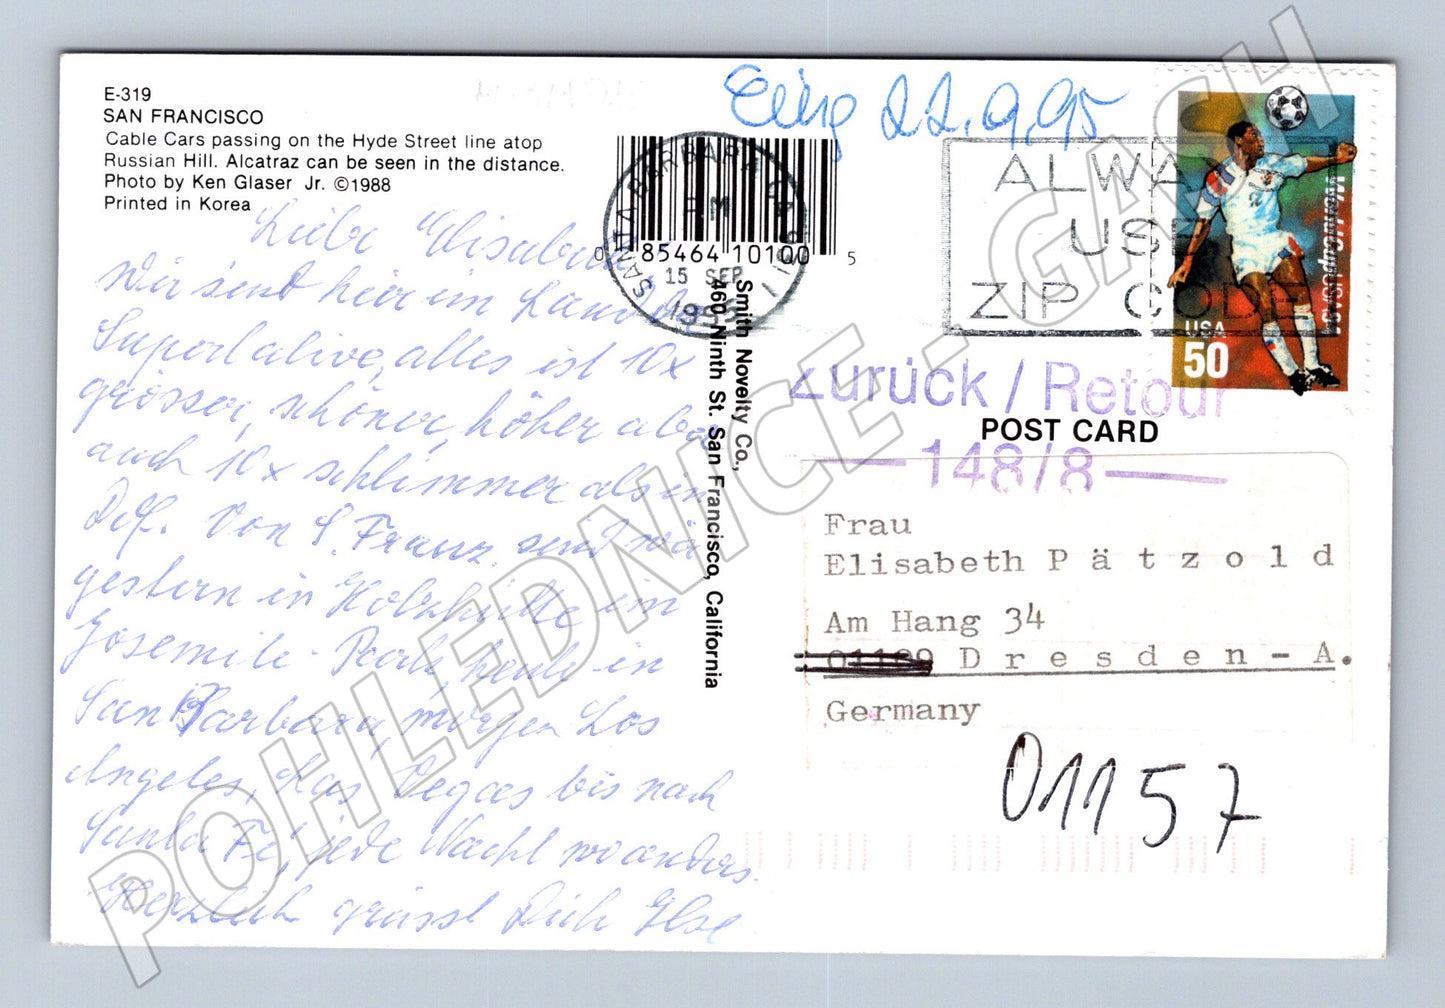 E-319
SAN FRANCISCO
Cable Cars passing on the Hyde Street line atop
Russian Hill. Alcatraz can be seen in the distance.
Photo by Ken Glaser Jr. ©1988
Printed in Korea
Liebe Elisabeth
Wir sind hier im Land der
Superlative, alles ist 10x
grösser, schöner, höher aber
auch 10x schlimmer als in
Dtl. Von S. Franz. sind wir
gestern in Holzhütte im
Yosemite-Park, heute in
San Barbara, morgen Los
Angeles, Las Vegas bis nach
Santa Fé, jede Nacht woanders.
Herzlich grüsst Dich Ilse
0 85464 10100 5
SANTA BARBARA CA
PM
15 SEP
1995
Smith Novelty Co.,
460 Ninth St. San Francisco, California
Eing 22.9.95
ALWAYS
USE
ZIP CODE
WorldCupUSA94
USA
50
Zurück / Retour
148/8
POST CARD
Frau
Elisabeth Pätzold
Am Hang 34
01189 Dresden-A.
Germany
01157
POHLEDNICE - GASH